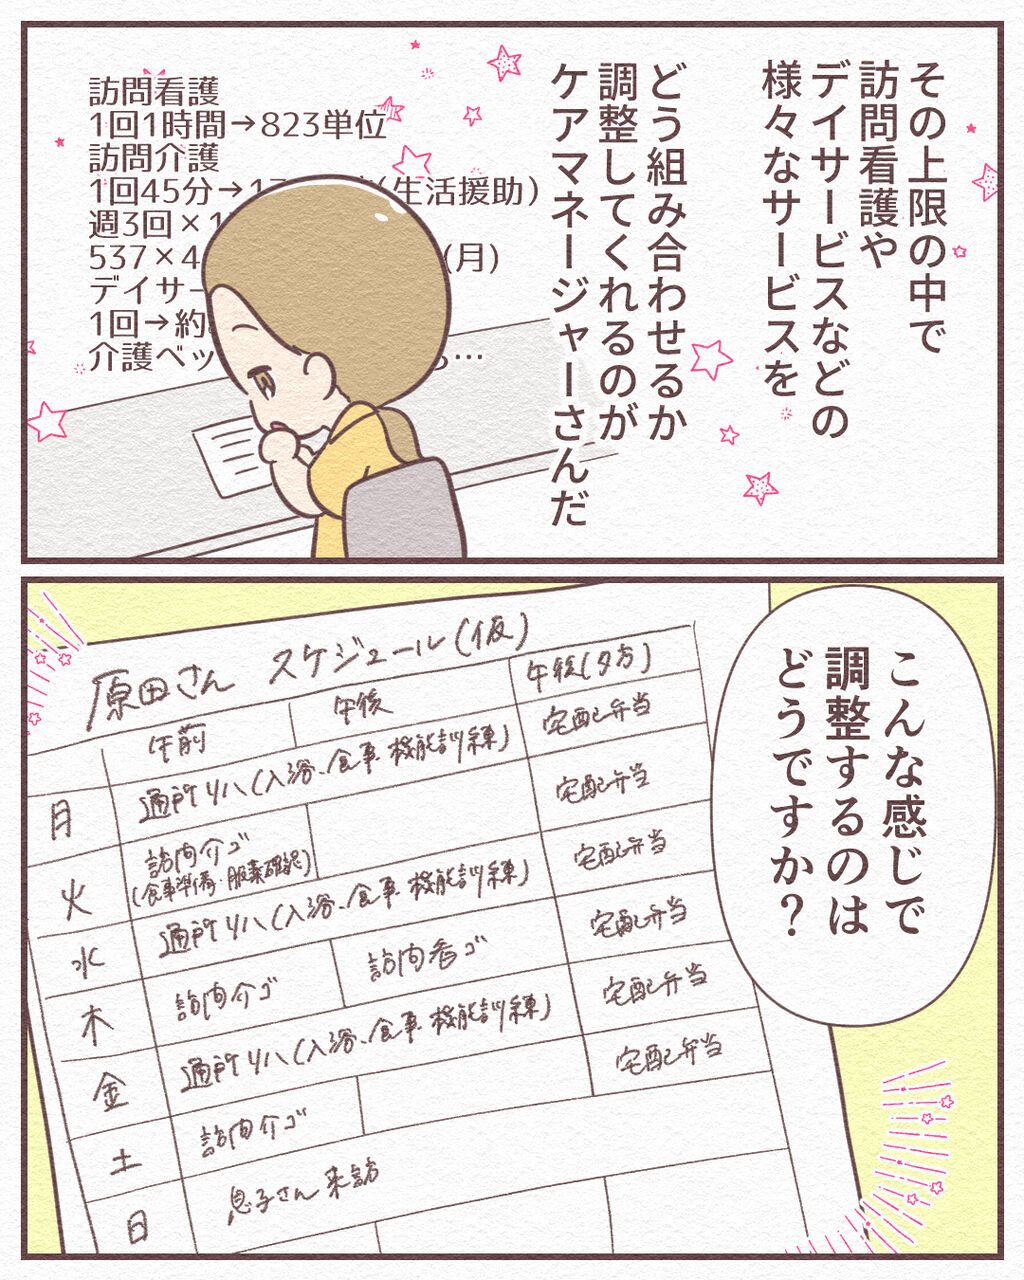 その上限の中で
訪問看護や
デイサービスなどの
様々なサービスを
どう組み合わせるか
調整してくれるのが
ケアマネージャーさんだ
訪問看護
1回1時間→823単位
訪問介護
1回45分→1 (生活援助)
週3回×1
537×4 (月)
デイサー
1回→約
介護ベッ …
こんな感じで
調整するのは
どうですか?
原田さん スケジュール(仮)
午前 午後 午後(夕方)
月 通所リハ(入浴、食事 機能訓練) 宅配弁当
火 訪問介ゴ (食事準備・服薬確認) 宅配弁当
水 通所リハ(入浴、食事 機能訓練) 宅配弁当
木 訪問介ゴ 訪問看ゴ 宅配弁当
金 通所リハ(入浴、食事 機能訓練) 宅配弁当
土 訪問介ゴ 宅配弁当
日 息子さん 来訪